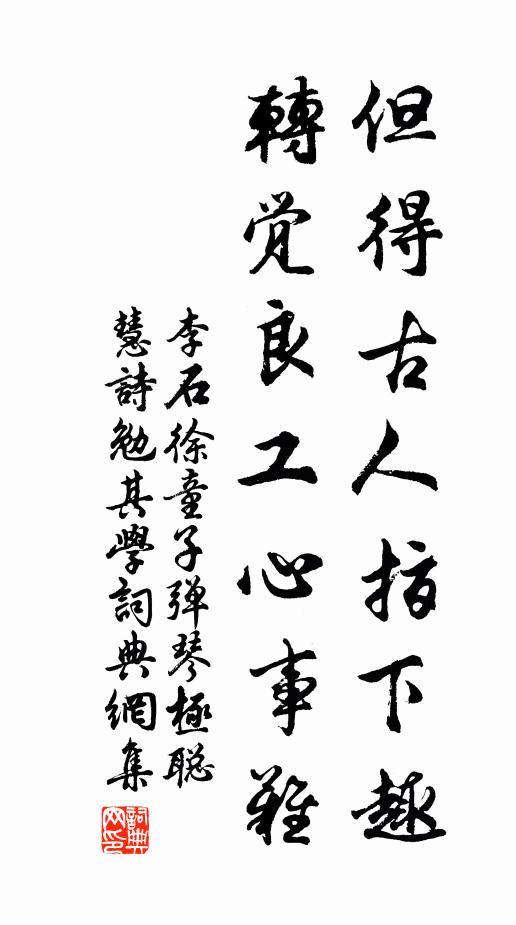 但得古人指下趣
轉觉良工心事難
李石徐童子弹琴極聪
慧詩勉其學詞典網集
詞典网印